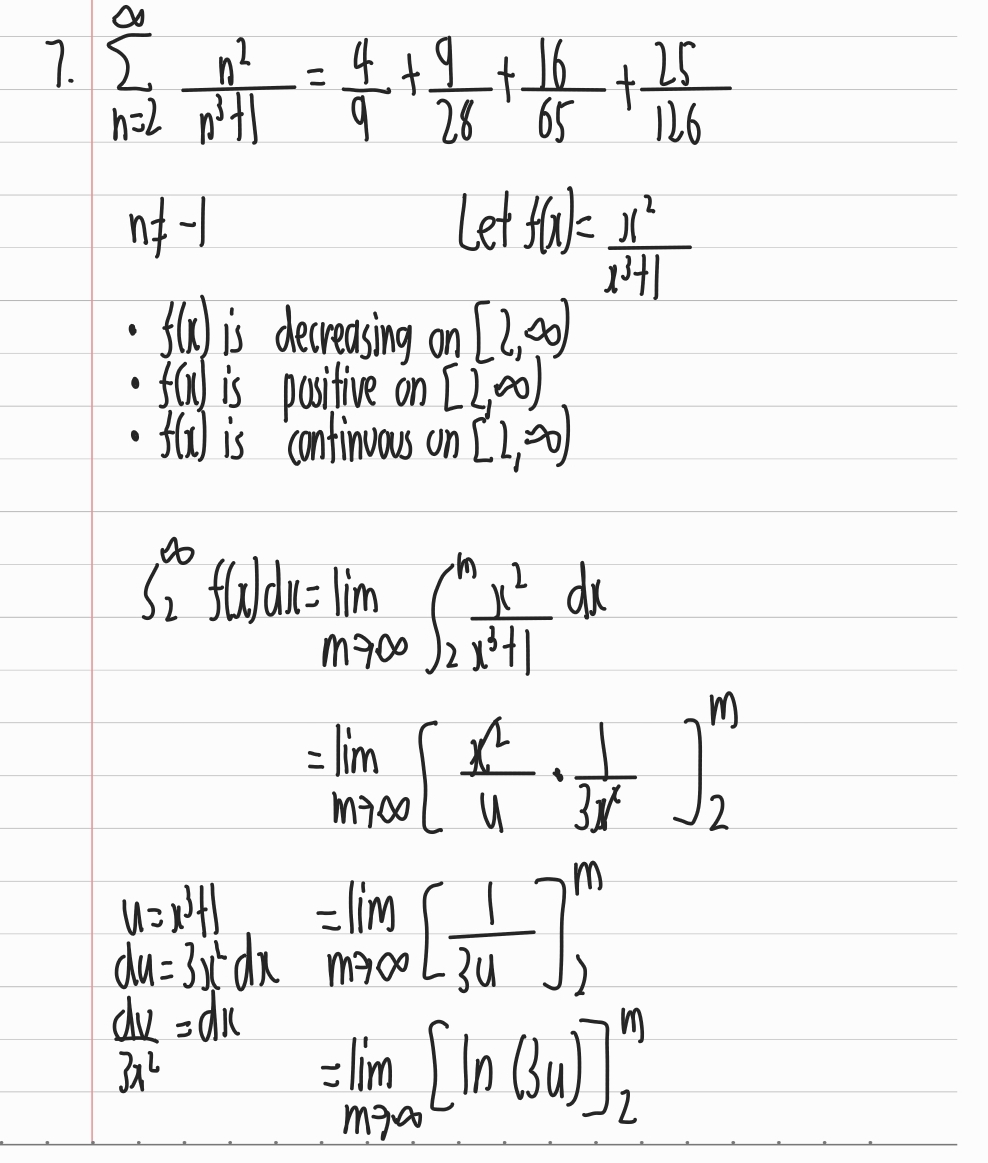 7. ∑_{n=2}^{∞} n²/(n³+1) = 4/9 + 9/28 + 16/65 + 25/126
n≠-1 Let f(x)= x²/(x³+1)
• f(x) is decreasing on [2,∞)
• f(x) is positive on [2,∞)
• f(x) is continuous on [2,∞)
∫_2^∞ f(x)dx = lim_{m→∞} ∫_2^m x²/(x³+1) dx
= lim_{m→∞} [ x²/u · 1/3x² ]_2^m
u=x³+1 = lim_{m→∞} [ 1/3u ]_2^m
du=3x²dx
du/3x² = dx = lim_{m→∞} [ln (3u)]_2^m